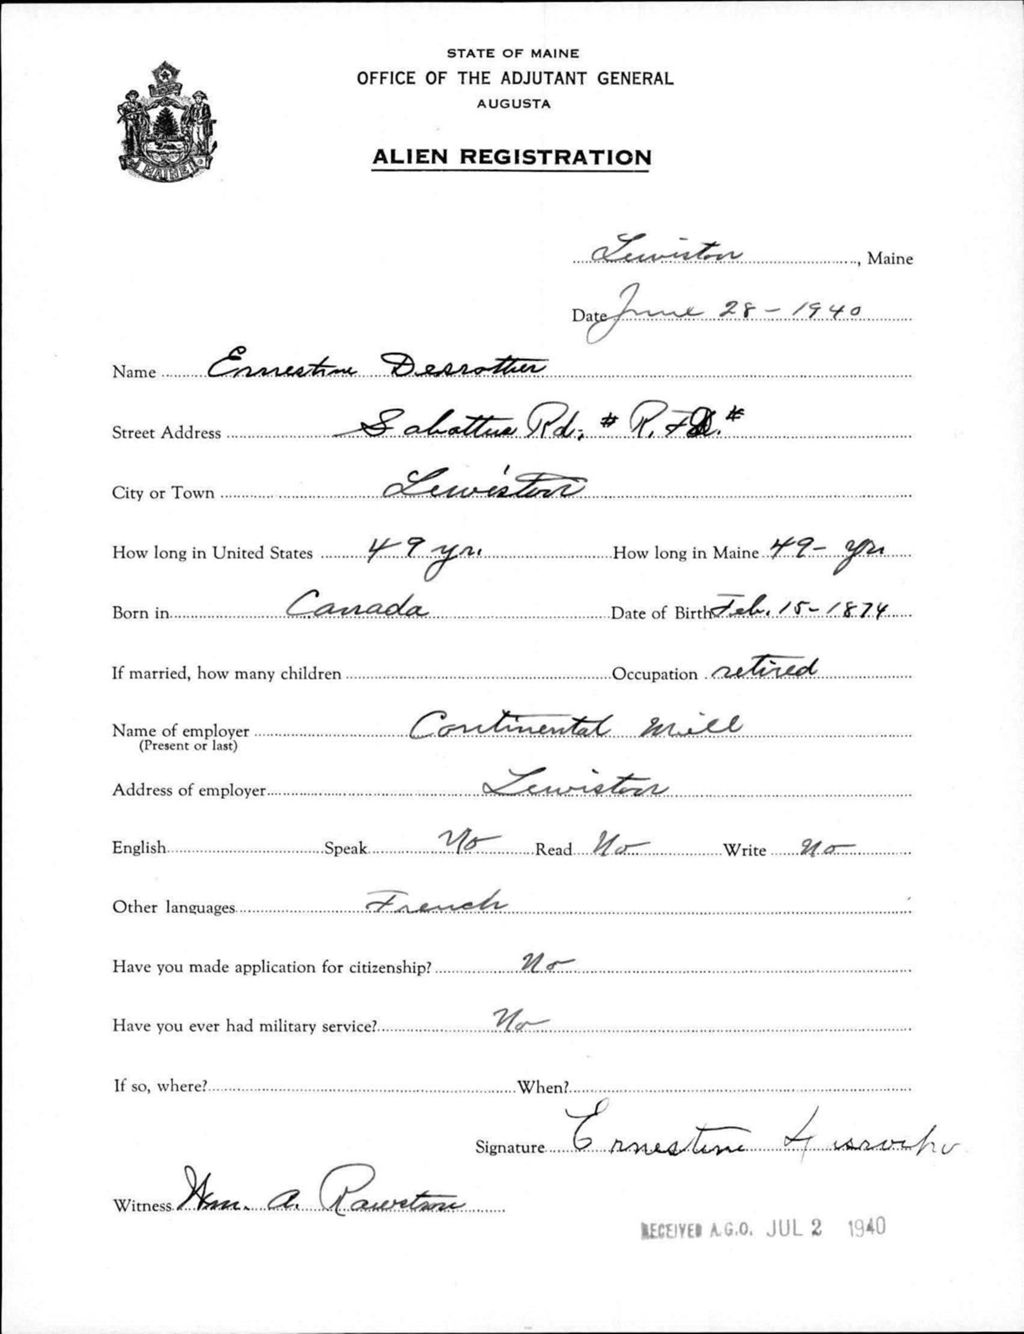 STATE OF MAINE
OFFICE OF THE ADJUTANT GENERAL
AUGUSTA
ALIEN REGISTRATION
MAINE
Lewiston, Maine
Date June 28 - 1940
Name Ernestine Desrother
Street Address Sabattus Rd, # R. F.D. #
City or Town Lewiston
How long in United States 49 yrs. How long in Maine 49 - yrs
Born in Canada Date of Birth Feb. 15 - 1874
If married, how many children Occupation retired
Name of employer Continental Mill
(Present or last)
Address of employer Lewiston
English Speak No Read No Write No
Other languages French
Have you made application for citizenship? No
Have you ever had military service? No
If so, where? When?
Signature Ernestine
Witness Wm. A. Rawstron
RECEIVED A.G.O. JUL 2 1940